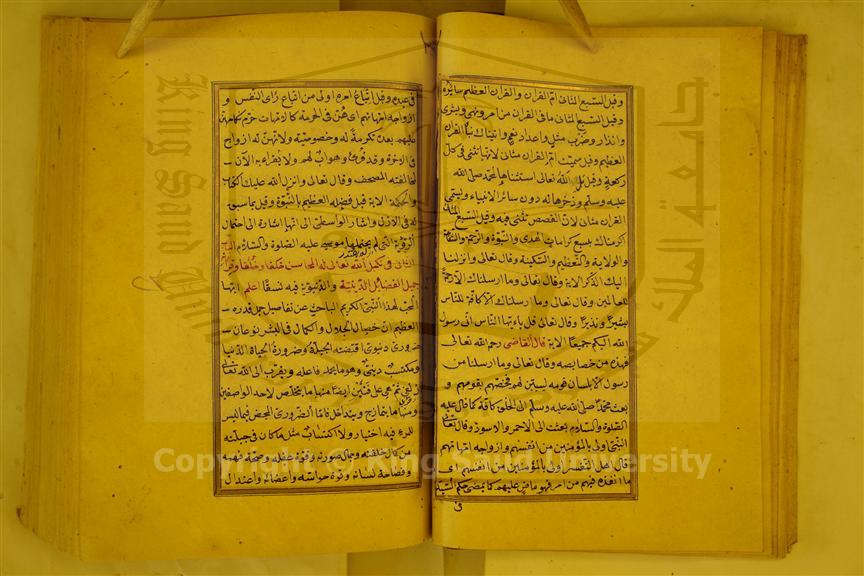 وقيل السبع المثاني امّ القران والقران العظيم سائره
وقيل السبع المثاني ما في القران من امر ونهي وبشرى
وانذار وضرب مثل واعداد نعم واتيناك نبأ القران
العظيم وقيل سميت امّ القران مثاني لانها تثنى في كل
ركعة وقيل بل الله تعالى استثناها لمحمد صلى الله
عليه وسلم وذخرها له دون سائر الانبياء ويسمّى
القران مثاني لان القصص تثنى فيه وقيل السبع المثاني
اكرمناك بسبع كرامات الهدى والنبوة والرحمة والشفاعة
والولاية والتعظيم والسكينة وقال تعالى وانزلنا
اليك الذكر الاية وقال تعالى وما ارسلناك الا رحمة
للعالمين وقال تعالى وما ارسلناك الا كافة للناس
بشيرا ونذيرا وقال تعالى قل يا ايها الناس اني رسول
الله اليكم جميعا الاية قال القاضي رحمه الله تعالى
فهذه من خصايصه وقال تعالى وما ارسلنا من
رسول الا بلسان قومه ليبين لهم فخصهم بقومهم و
بعث محمدا صلى الله عليه وسلم الى الخلق كافة كما قال عليه
الصلوة والسلام بعثت الى الاحمر والاسود وقال تعالى
النبي اولى بالمؤمنين من انفسهم وازواجه امهاتهم
قال اهل التفسير اولى بالمؤمنين من انفسهم اي
ما انفذه فيهم من امر فهو ماض عليهم كما يمضي حكم السيد
في
في عبده وقيل اتباع امره اولى من اتباع رأي النفس و
ازواجه امهاتهم اي هن في الحرمة كالامهات حرم نكاحهن
عليهم بعده تكرمة له وخصوصية ولانهن له ازواج
في الاخرة وقد قرئ وهو اب لهم ولا يقرأ به الان
لمخالفته المصحف وقال تعالى وانزل الله عليك الكتاب
والحكمة الاية قيل فضله العظيم بالنبوة وقيل بما سبق
له في الازل واشار الواسطي الى انها اشارة الى احتمال
الرؤية التي لم يحتملها موسى عليه الصلوة والسلام الباب
الثاني في تكميل الله تعالى له المحاسن خلقا وخلقا وقرانه
جميع الفضائل الدينية والدنيوية فيه نسقا اعلم ايها
المحب لهذا النبي الكريم الباحث عن تفاصيل جمل قدره
العظيم ان خصال الجلال والكمال في البشر نوعان
ضروري دنيوي اقتضته الجبلة وضرورة الحياة الدنيا
ومكتسب ديني وهو ما يحمد فاعله ويقرب الى الله تعالى
زلفى ثم هي على فنين ايضا منها ما يتخلص لاحد الوصفين
ومنها ما يتمازج ويتداخل فاما الضروري المحض فما ليس
للمرء فيه اختيار ولا اكتساب مثل ما كان في جبلته
من كمال خلقته وجمال صورته وقوة عقله وصحة فهمه
وفصاحة لسانه وقوة حواسه واعضائه واعتدال
جامعة الملك سعود
King Saud University
Copyright © King Saud University